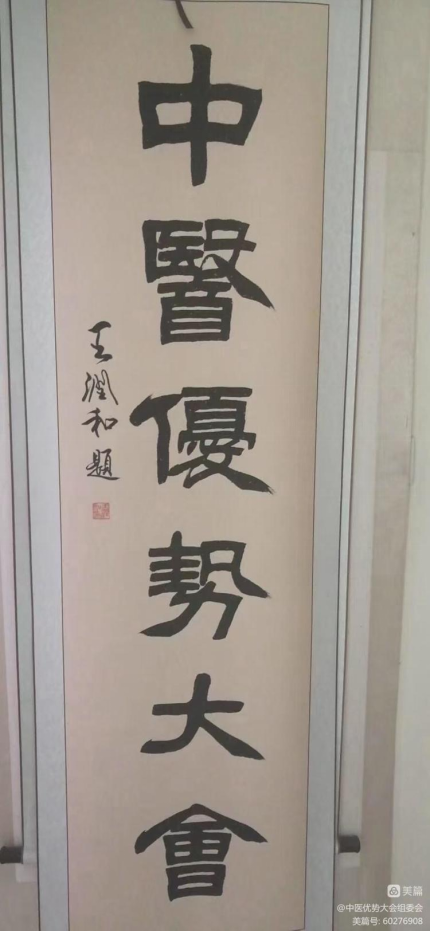 中醫優勢大會
王潤和題
美篇
@中医优势大会组委会
美篇号: 60276908